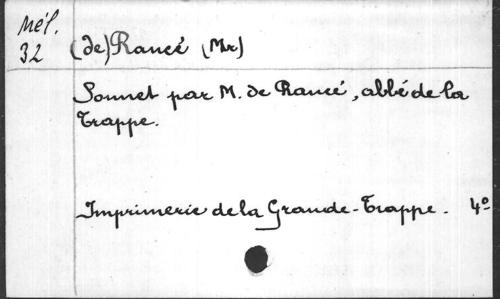 Mél.
32
(de) Rancé (Mr)
Sonnet par M. de Rancé, abbé de la
Trappe.
Imprimerie de la Grande-Trappe. 4º